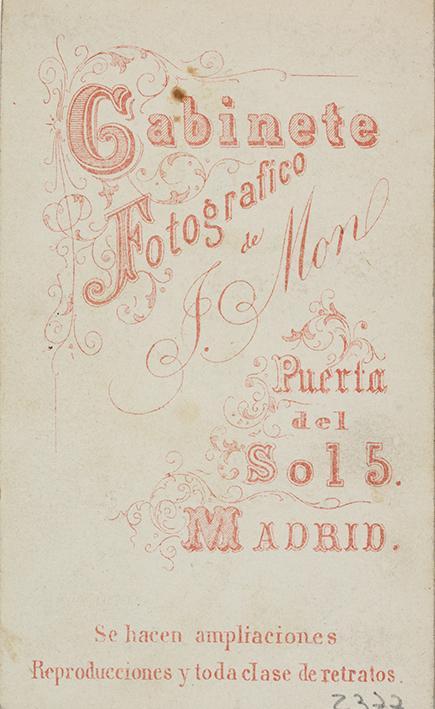 Gabinete
Fotografico
de
J. Mon
Puerta
del
Sol 5.
MADRID.
Se hacen ampliaciones
Reproducciones y toda clase de retratos.